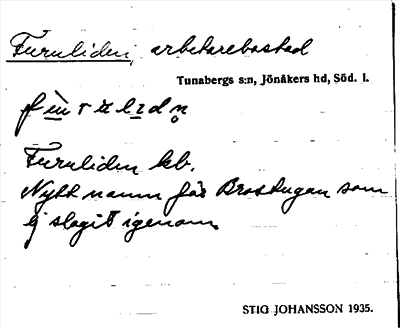 Furuliden, arbetarebostad
Tunabergs s:n, Jönåkers hd, Söd. l.
Furuliden kb.
Nytt namn för Brostugan som
ej slagit igenom.
STIG JOHANSSON 1935.